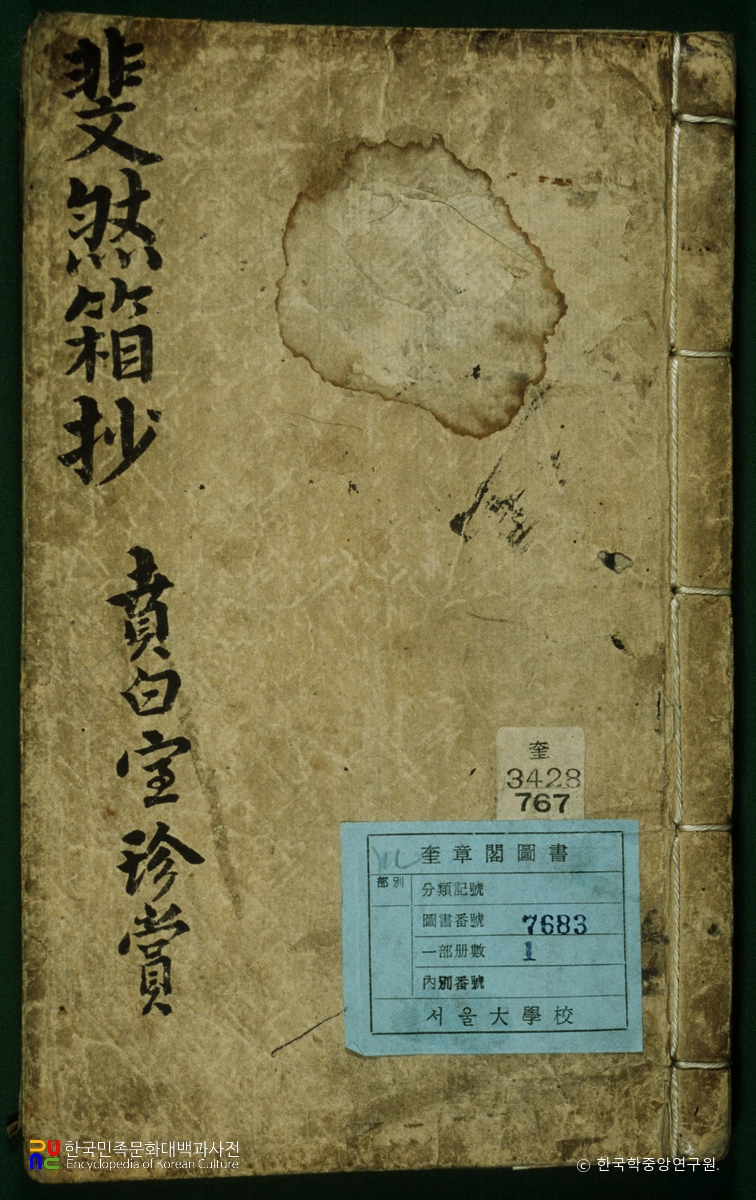 斐文煞箱抄
賁白室珍賞
奎
3428
767
奎章閣圖書
部別
分類記號
圖書番號 7683
一部册數 1
內別番號
서울大學校
한국민족문화대백과사전
Encyclopedia of Korean Culture
© 한국학중앙연구원.